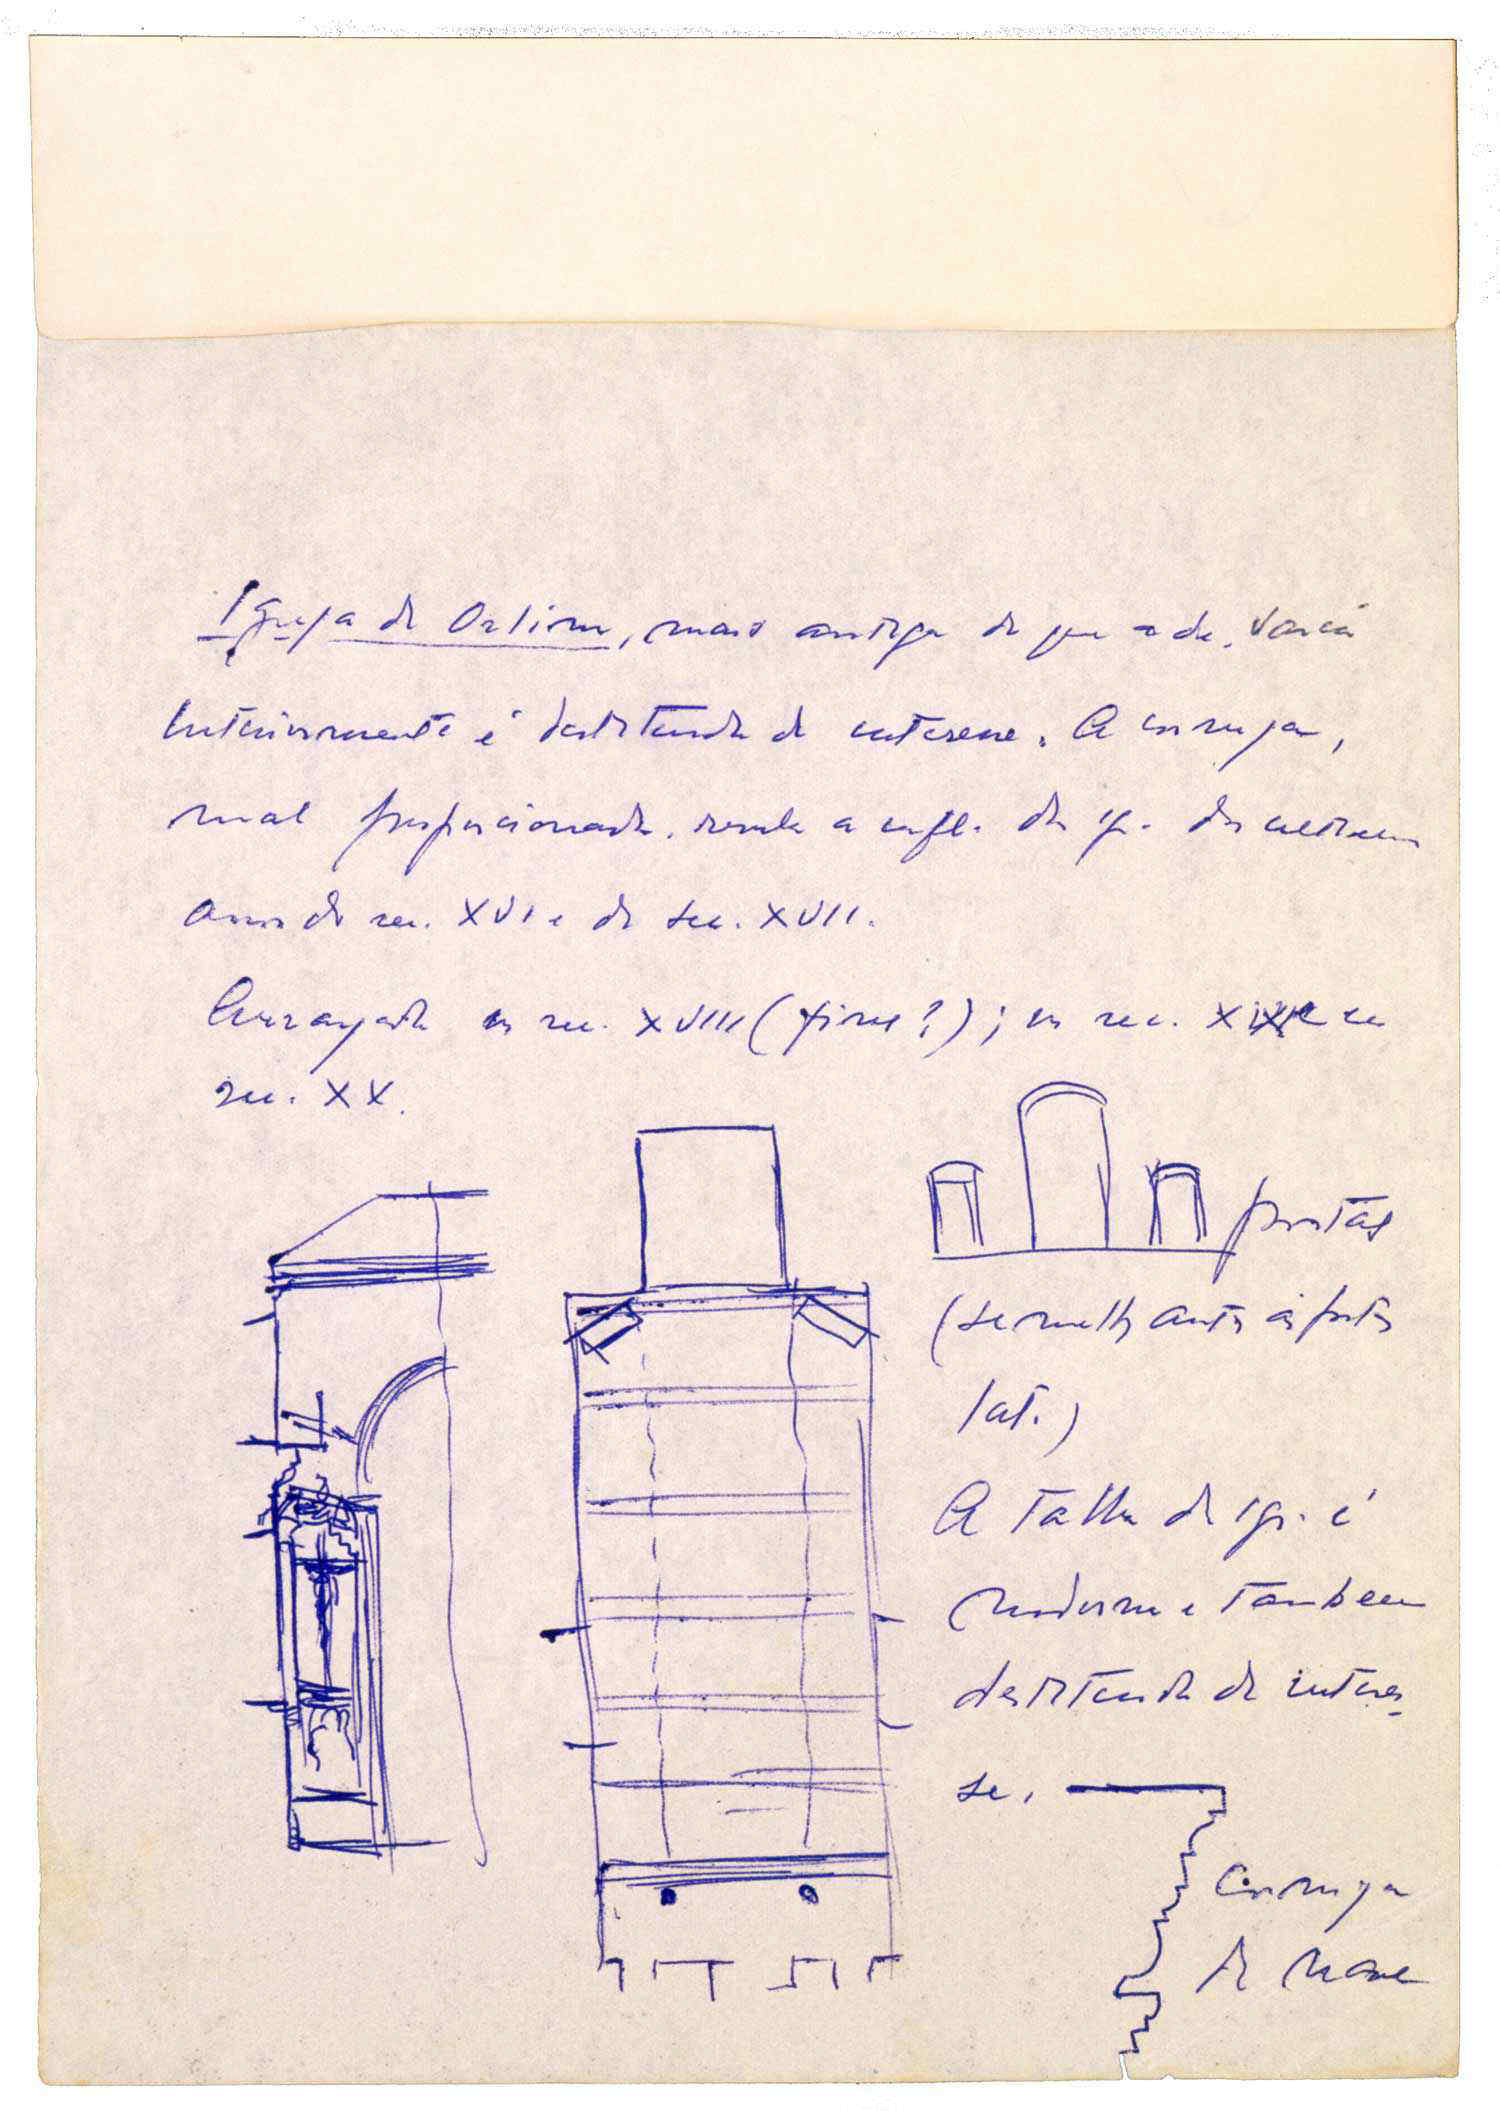 Igreja de Orlim, mais antiga do que a de Varcá
Interiormente é destituida de interesse. A cornija,
mal proporcionada. revela a infl. das ig. dos ultimos
anos do sec. XVI e do sec. XVII.
Arranjada no sec. XVIII (fins?); no sec. XIX e no
sec. XX.
portas
(semelhantes às portas
lat.)
A talha da igr. é
moderna e tambem
destituida de interes-
se.
Cornija
da nave